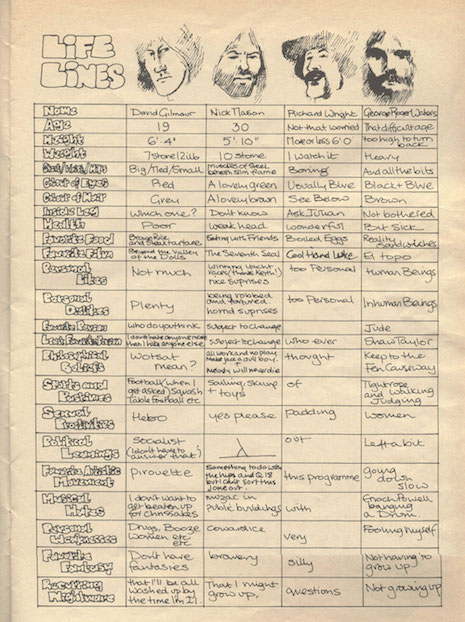 LIFE
LINES
Name
David Gilmour
Nick Mason
Richard Wright
George Roger Waters
Age
19
30
Not that worried
That difficult age
Height
6'.4"
5'.10"
More or less 6'0"
too high to turn
back
Weight
7stone 12lb
10 stone
I watch it
Heavy
Big/Med/Small
muscles of Steel
beneath slim frame
Boring
And all the bits
Colour of Eyes
Red
A lovely green
Usually Blue
Black + Blue
Colour of Hair
Grey
A lovely brown
See Below
Brown
Inside Leg
Which one?
Don't know
Ask Julian
Not bothered
Health
Poor
weak head
wonderful
But Sick
Favorite Food
Brown Rice
and Steak tartare
Eating with Friends
Boiled Eggs
Reality
Sandwiches
Favorite Film
Beyond the Valley
of the Dolls
The Seventh Seal
Cool Hand Luke
El topo
Personal
Likes
Not much
winning yacht
races/thinks Kent/
nice suprises
too Personal
Human Beings
Personal
Dislikes
Plenty
being robbed
and tortured
horrid suprises
too Personal
Inhuman Beings
Favorite Person
who do you think
subject to change
Jude
Least Favorite Person
I don't hate anyone more
than I hate anyone else
subject to change
who ever
Shaw Taylor
Philosophical
Beliefs
Wotsat
mean?
all work and no play
make Jack a dull boy.
+
Melody will never die
thought
Keep to the
ten Causeway
Sports and
Pastimes
Football (when I
get asked) Squash
Table football etc
Sailing, skiing
+ toys
of
Tightrope
and Walking
Judging
Sexual
Proclivities
Hetro
yes please
padding
Women
Political
Leanings
Socialist
(I don't have to
answer that)
out
Left a bit
Favorite Artistic
Movement
Pirouette
Something to do with
the hips and Q.18
but I can't sort this
joke out.
this programme
going
down
slow
Musical
Hates
I don't want to
get beaten up
for Chrissakes
muzac in
public buildings
with
Enoch Powell
banging
a Drum
Personal
Weaknesses
Drugs, Booze
Women etc
etc
Cowardice
very
Fooling myself
Favorite
Fantasy
Don't have
fantasies
bravery
silly
Not having to
grow up
Recurring
Nightmare
that I'll be all
washed up by
the time I'm 21.
That I might
grow up.
questions
Not growing up